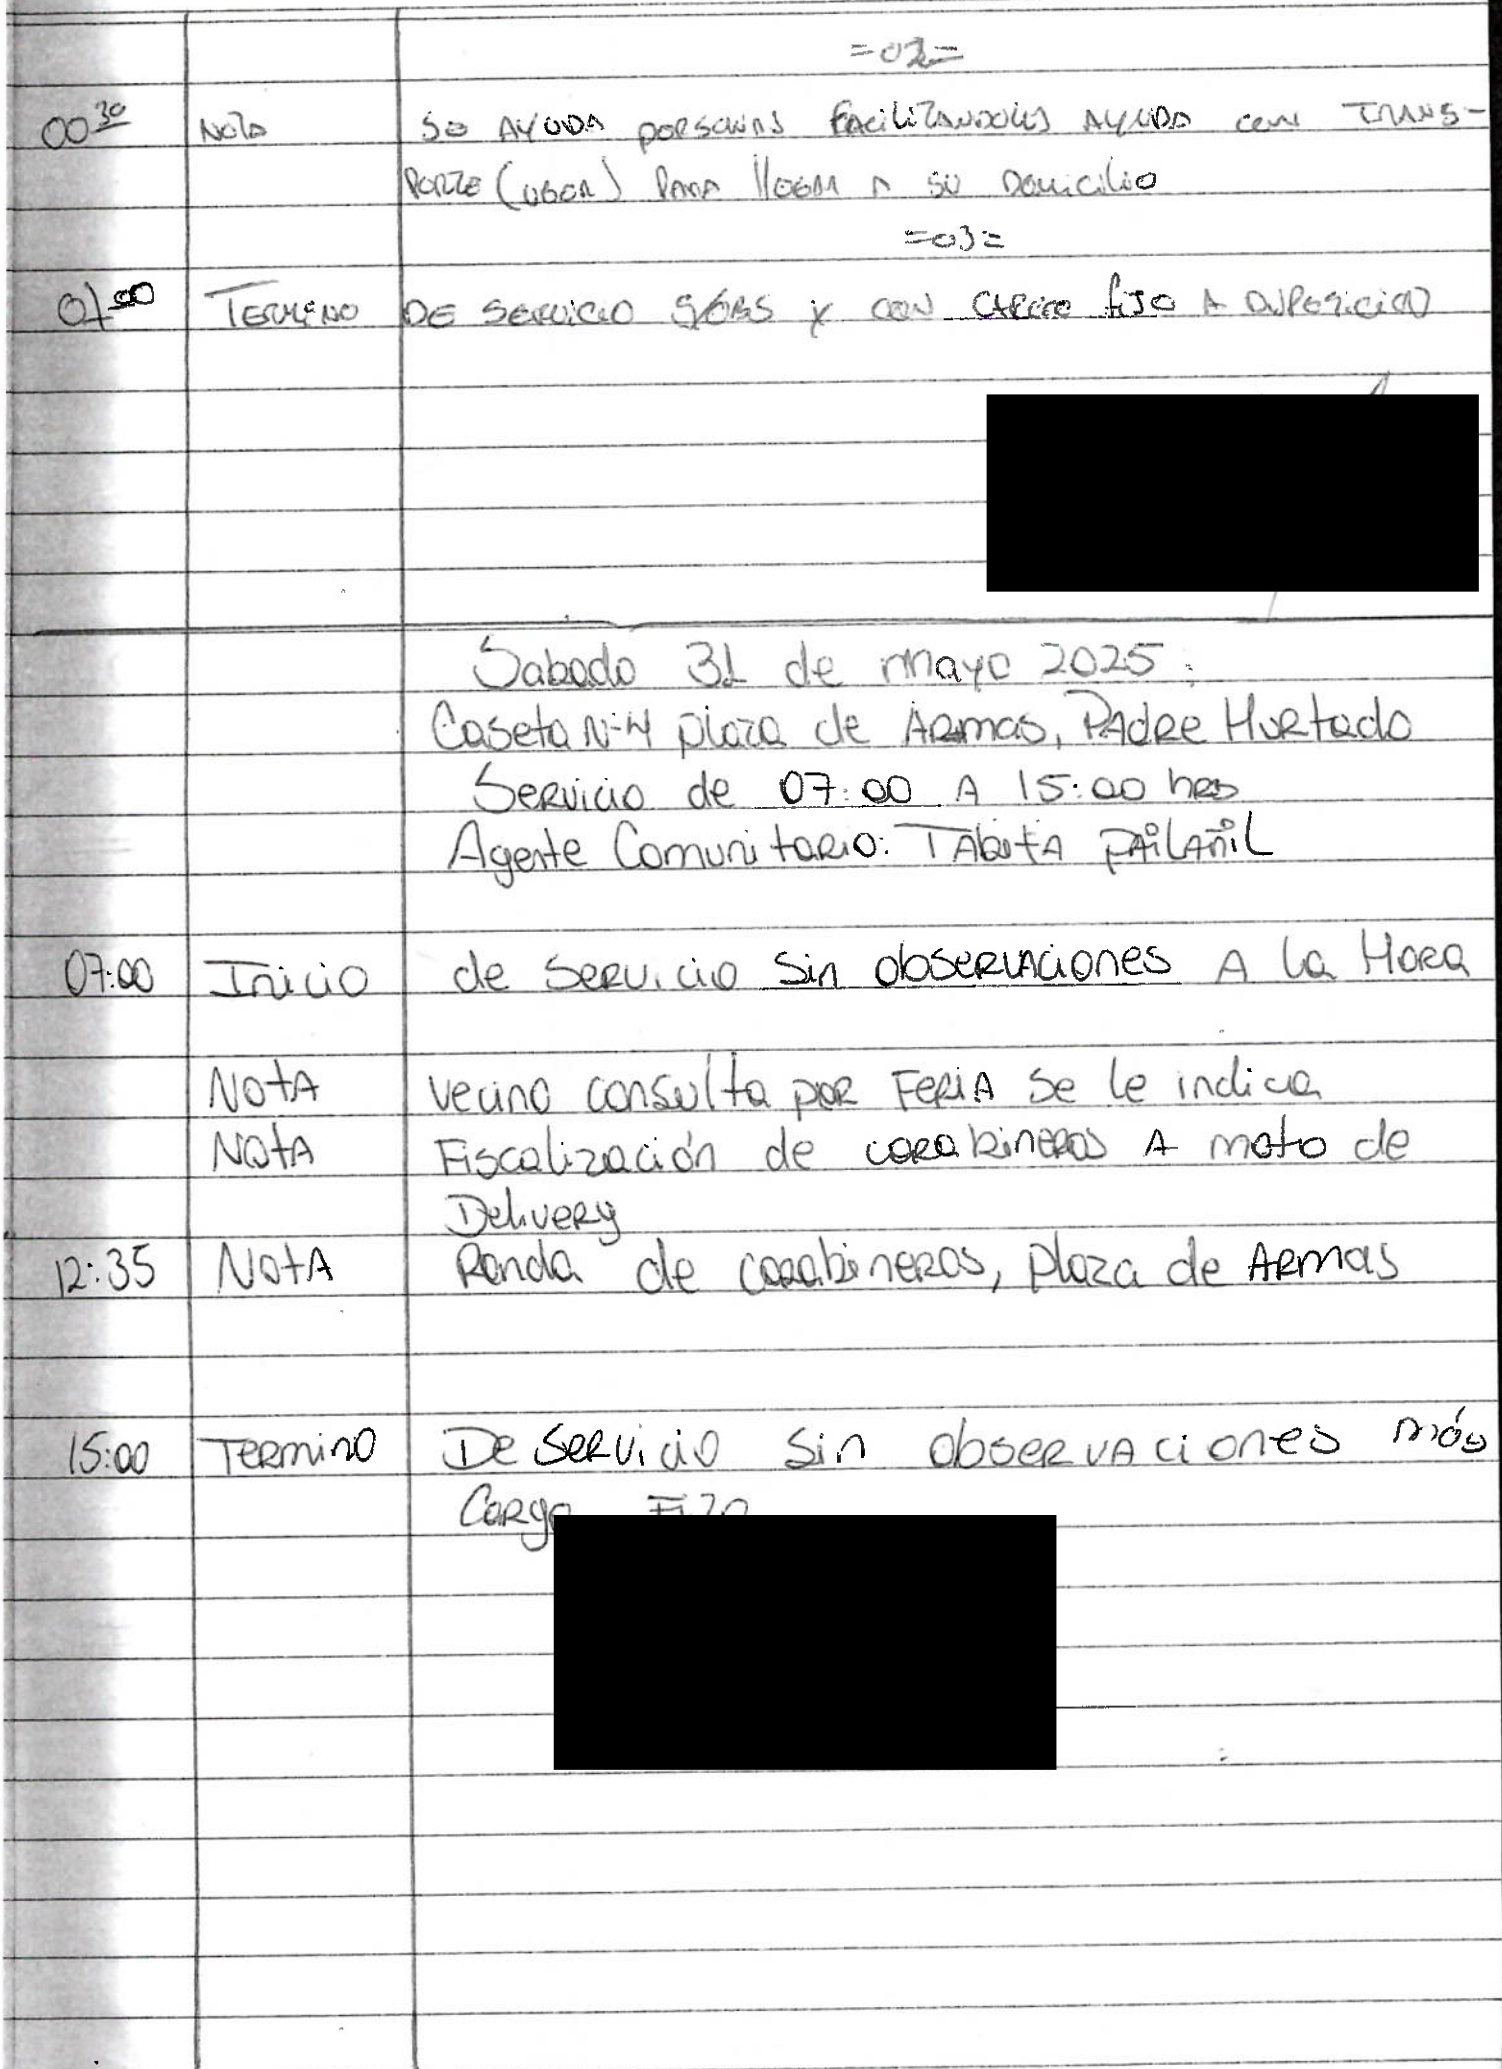 =02=
00 30 Nota Se AYUDA personas FACILITANDOLES AYUDA con TRANS-
PORTE (UBER) PARA llegar A SU Domicilio
=03=
07 00 TERMINO DE SERVICIO S/OBS Y CON CARGO fijo A DISPOSICION
Sabado 31 de mayo 2025.
Caseta N-4 plaza de Armas, PAdRe HuRtado
SeRvicio de 07:00 A 15:00 hrs
Agente ComunitaRio: TAbitA pAilAñiL
07:00 Inicio de SeRvicio Sin obseRvaciones A la HoRa
NotA vecino consulta poR FeRiA Se le indica
NotA Fiscalización de caRabineRos A moto de
DeliveRy
12:35 NotA Ronda de caRabineRos, plaza de ARmas
15:00 TeRmino De SeRvicio Sin obseRvAciones más
CaRgo Fijo